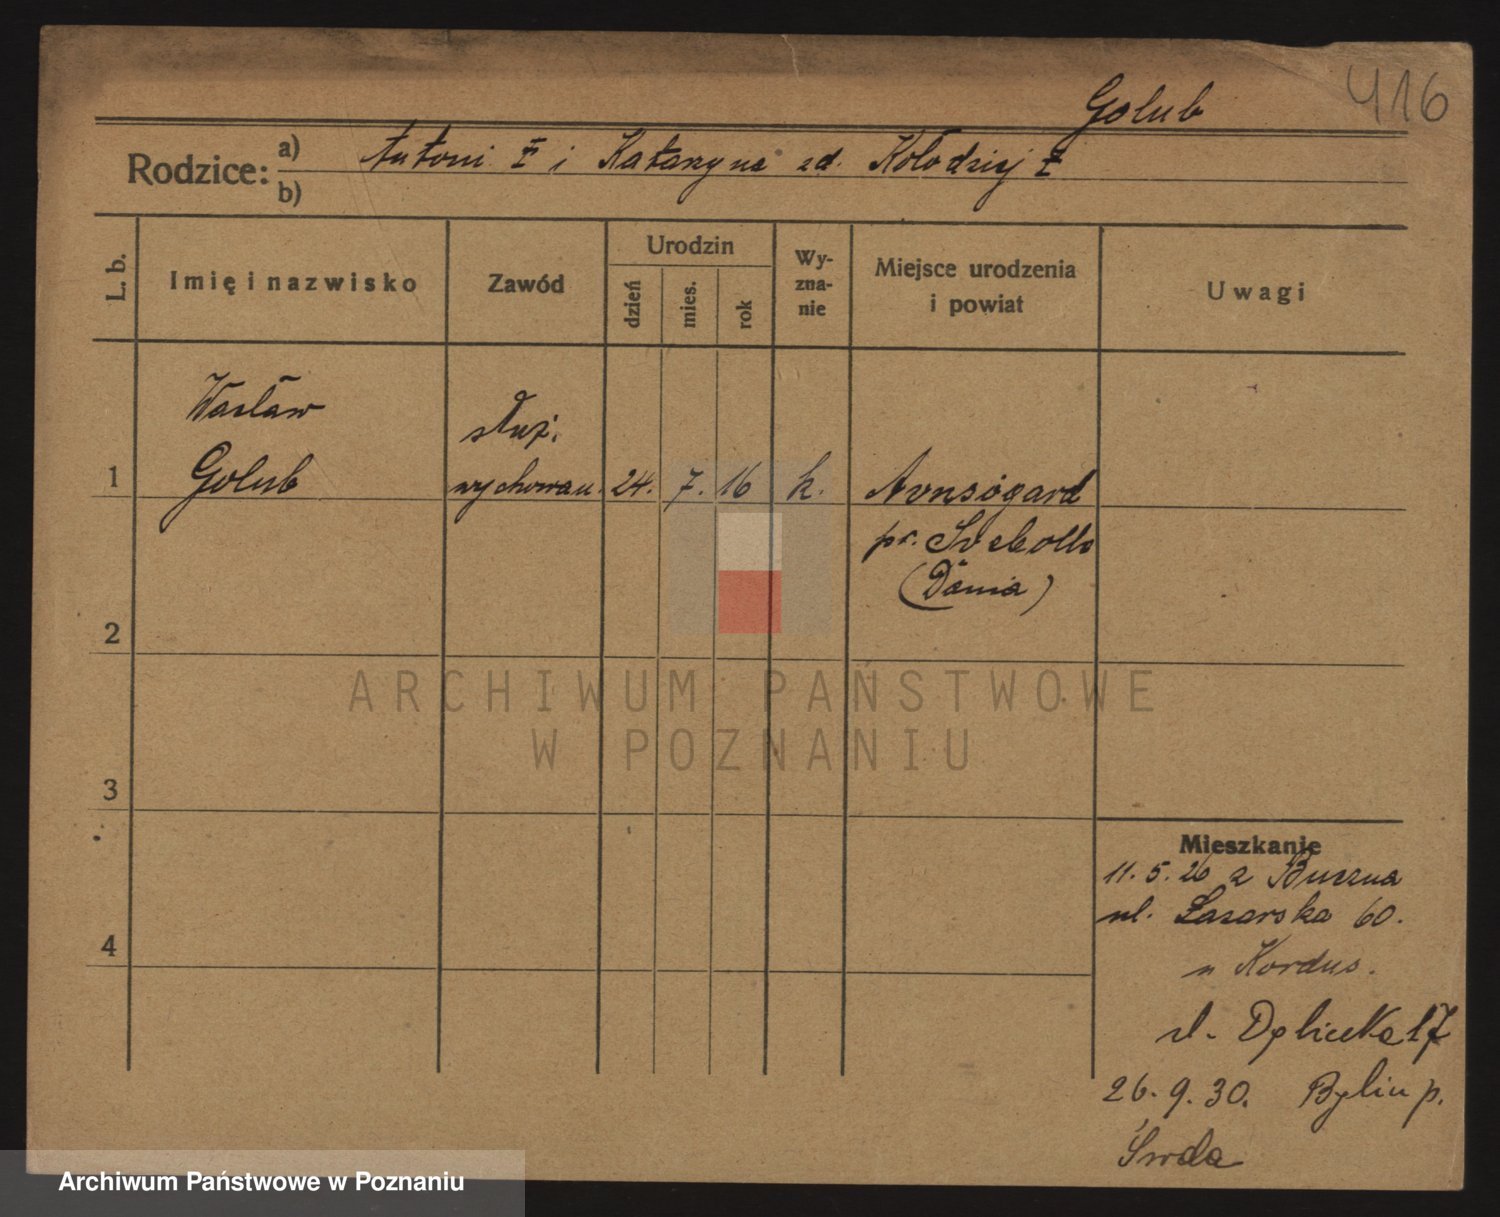 416
Golub
Rodzice: a) Antoni ‡ i Katarzyna zd. Kołodziej ‡
b)
L. b.
Imię i nazwisko
Zawód
Urodzin
dzień
mies.
rok
Wy-
zna-
nie
Miejsce urodzenia
i powiat
Uwagi
Wacław
służ.
1 Golub wychowan. 24. 7. 16 k. Avnsögard
pr. Svebölle
(Dania)
2
ARCHIWUM PAŃSTWOWE
W POZNANIU
3
Mieszkanie
11. 5. 26 z Buczna
ul. Łazarska 60.
4
u Kordus.
ul. Dębiecka 17
26. 9. 30. Bylin p.
Środa
Archiwum Państwowe w Poznaniu